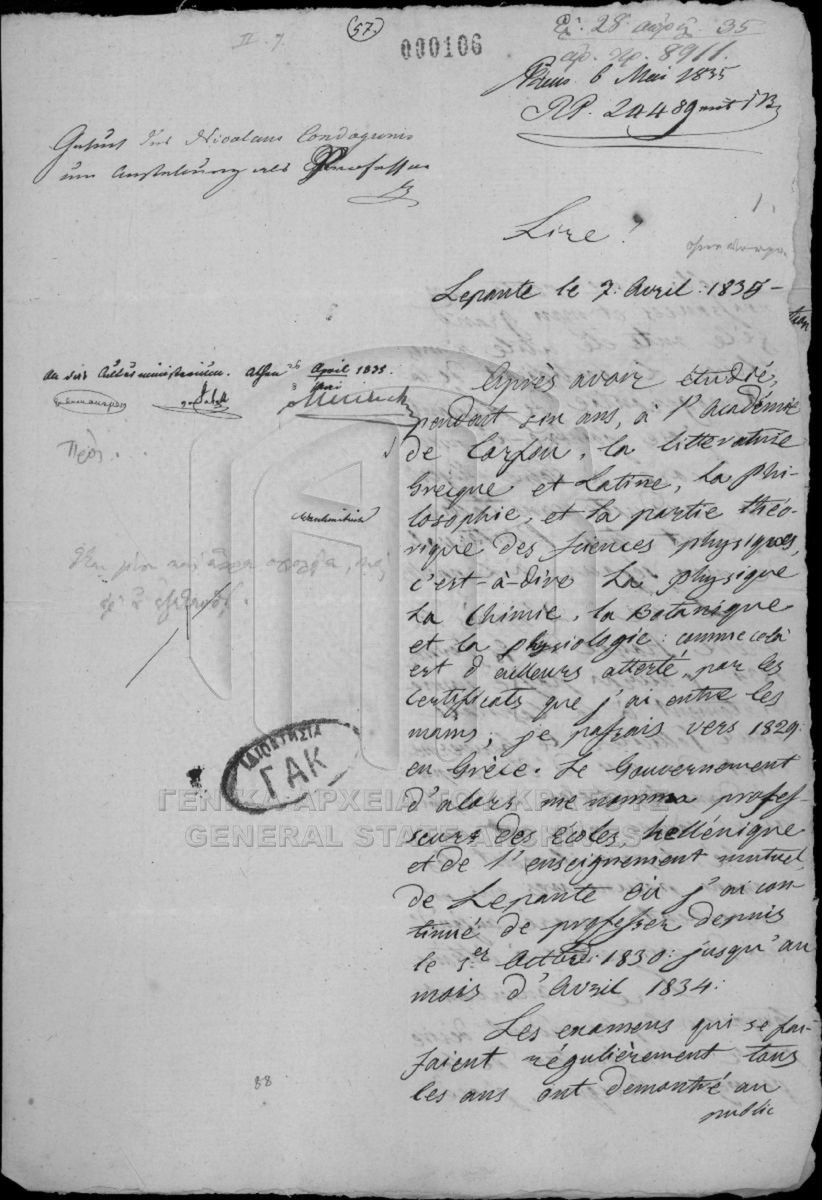 57.
II. 7.
000106
28 35
8911.
6 Mai 1835
24489
Gesuch des Nicolaus Condogunis
um Anstellung als Professor
1.
Sire!
Lepante le 7. Avril. 1835
An das Cultusministerium. Athen 26 April 1835.
8 Mai
Πρὸς
Après avoir étudié,
pendant six ans, à l'Académie
de Corfou, la litterature
Grècque et Latine, la phi-
losophie, et la partie théo-
rique des sciences physiques,
c'est-à-dire la physique
la Chimie, la Botanique
et la physiologie: comme cela
est d'ailleurs attesté, par les
Certificats que j'ai entre les
mains, je passais vers 1829.
en Grèce. Le Gouvernement
d'alors me nomma profes-
seurs des écoles, hellénique
et de l'enseignement mutuel,
de Lepante où j'ai con-
tinué de professer depuis
le 1er Octobre 1830: jusqu'au
mois d'Avril 1834:
Les examens qui se fai-
saient régulièrement tous
les ans ont demontré au
public
ΙΔΙΟΚΤΗΣΙΑ
ΓΑΚ
ΓΕΝΙΚΑ ΑΡΧΕΙΑ ΤΟΥ ΚΡΑΤΟΥΣ
GENERAL STATE ARCHIVES
88